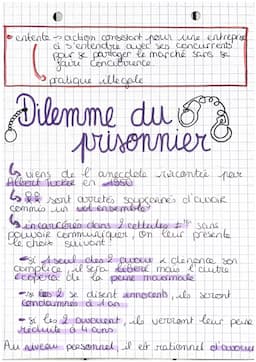 entente → action consistant pour une entreprise
à s'entendre avec ses concurrents
pour se partager le marché sans se
faire concurrence.
pratique illégale
Dilemme du
prisonnier
viens de l'anecdote racontée par
Albert Tucker en 1950
sont arrêtés soupçonnés d'avoir
commis un vol ensemble
incarcérés dans 2 cellules ≠ sans
pouvoir communiquer, on leur présente
le choix suivant:
- si 1 seul des 2 avoue & dénonce son
complice, il sera libéré mais l'autre
écopera de la peine maximale
- si les 2 se disent innocents, ils seront
condamnés à 1 an
- si les 2 avouent, ils verront leur peine
réduite à 4 ans
Au niveau personnel, il est rationnel d'avouer